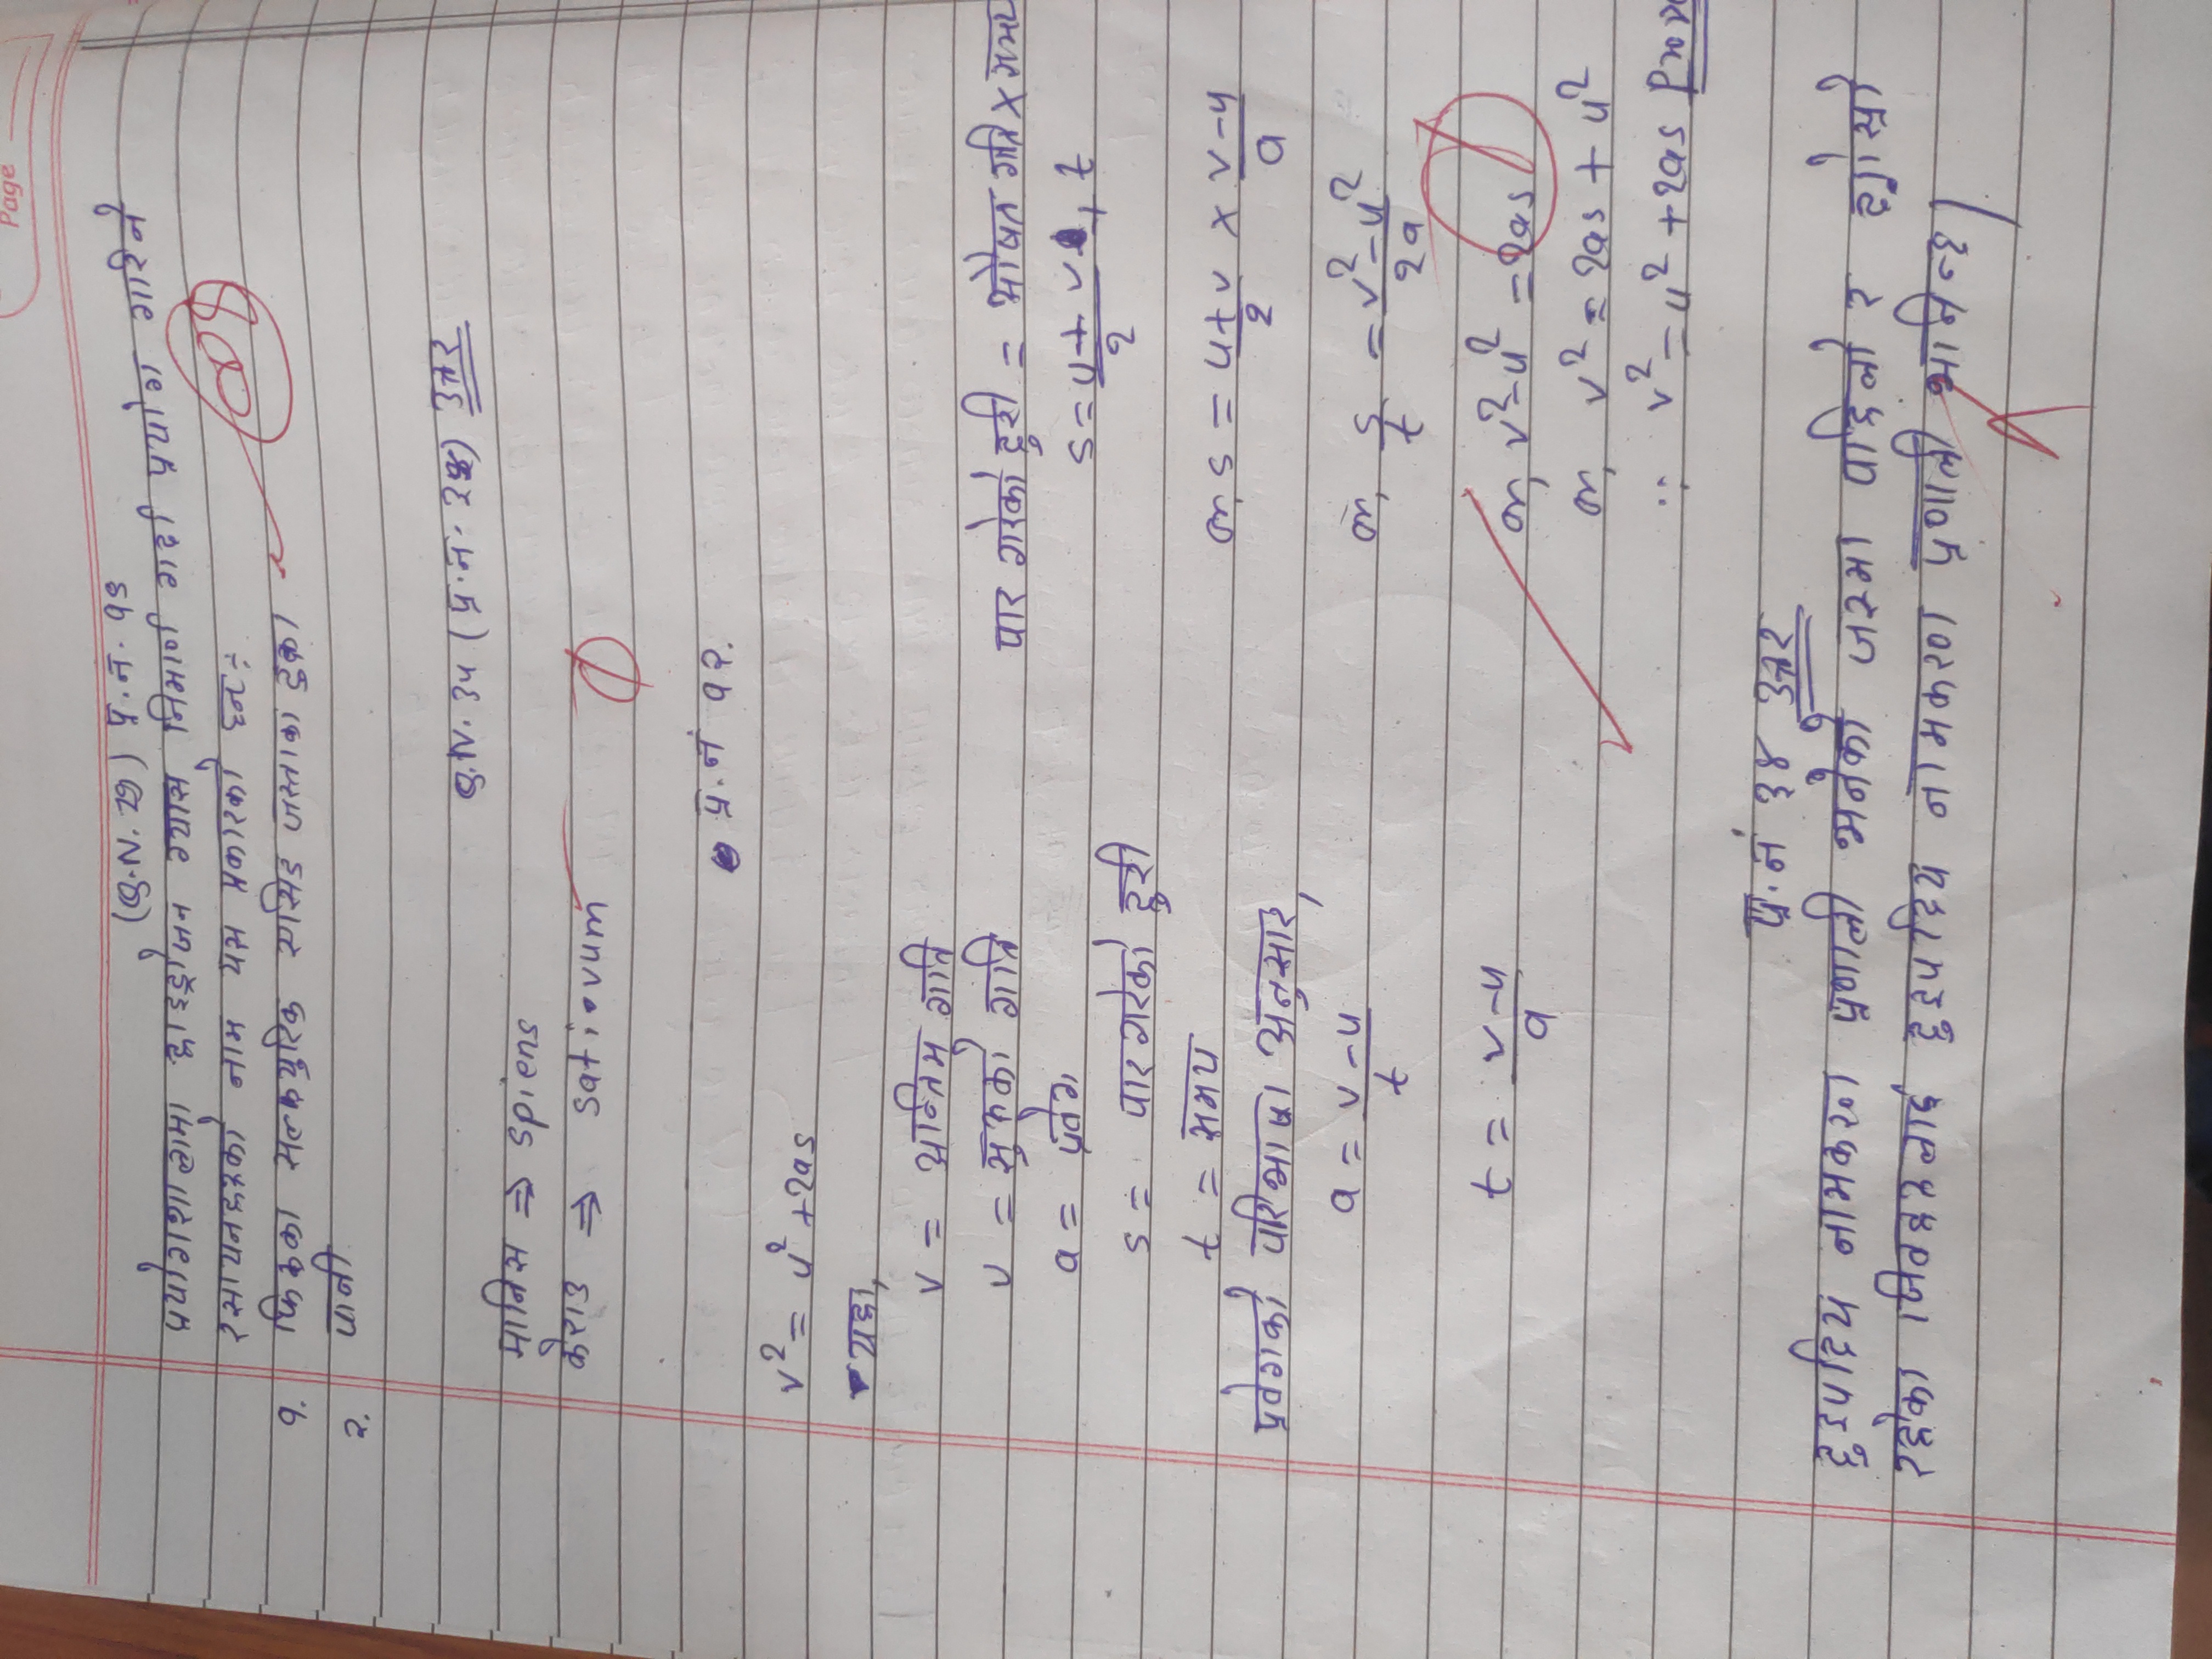 Page
(Q.N. 29) प्र.न. १९
प्रयोगशालामा हाइड्रोजन ग्यास निमार्ण गर्दा प्रयोग गरिने
रसायनहरुको नाम यस प्रकारको छन :
१. फिक्का सल्फ्युरिक एसिड जस्ताका टुक्रा
२. पानी
Q.N. ३५ (प्र.न. ) उत्तर
मानिस ⇒ spiens
केराउ ⇒ sativum
प्र.नं १२.
v² = u² + 2as
यहा,
v = अन्तिम गति
u = सुरुको गति
a = प्रवेग
s = पारगरेको दुरी
t = समय
प्रवेगको परिभाषा अनुसार,
a = v-u/t
t = v-u/a
पार गरेको दुरी = औषत गति × समय
s = u+v/2 × t
or, s = u+v/2 × v-u/a
or, s/t = v²-u²/2a
or, v²-u² = 2as
or, v² = 2as + u²
∴ v² = u² + 2as
प्र.नं ३४ उत्तर
दुइपदिय नामकरण प्रणाली भनेको जस्मा पाहिलो र दोस्रो
रहेका जिवहरुलाई दुइपदिय नामकरण प्रणाली भनिन्छ।